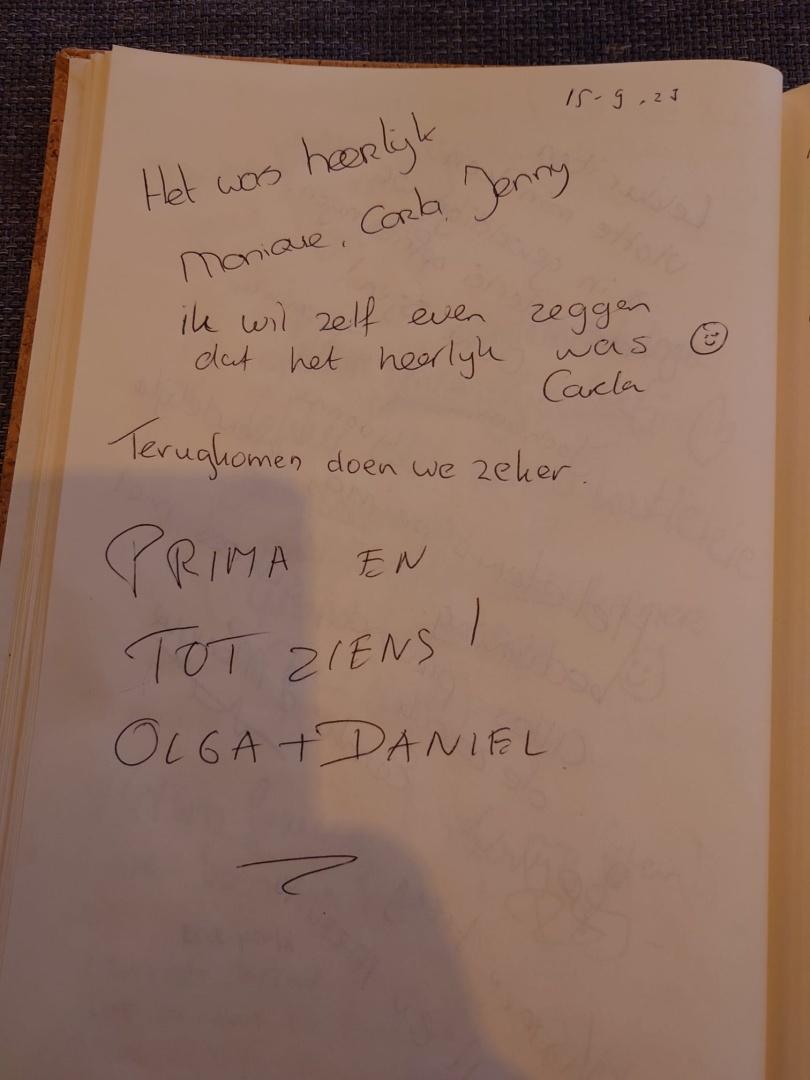 15-9.23
Het was heerlijk
Monique, Carla, Jenny
ik wil zelf even zeggen
dat het heerlyk was
Carla
Terugkomen doen we zeker.
PRIMA EN
TOT ZIENS!
OLGA + DANIEL